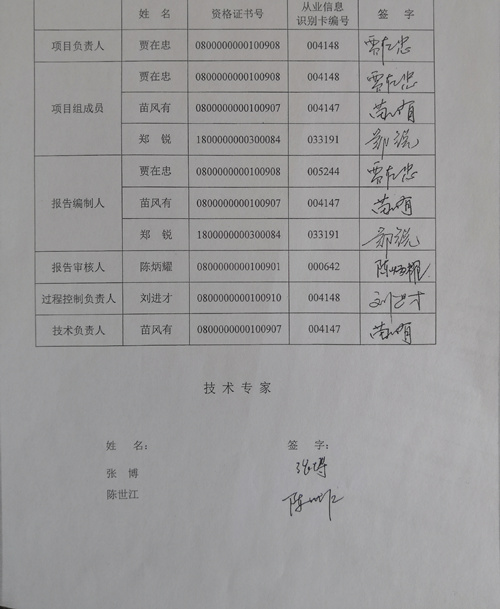 姓 名 资格证书号 从业信息识别卡编号 签 字
项目负责人 贾在忠 0800000000100908 004148 贾在忠
项目组成员 贾在忠 0800000000100908 004148 贾在忠
苗风有 0800000000100907 004147 苗风有
郑 锐 1800000000300084 033191 郑锐
报告编制人 贾在忠 0800000000100908 005244 贾在忠
苗风有 0800000000100907 004147 苗风有
郑 锐 1800000000300084 033191 郑锐
报告审核人 陈炳耀 0800000000100901 000642 陈炳耀
过程控制负责人 刘进才 0800000000100910 004148 刘进才
技术负责人 苗风有 0800000000100907 004147 苗风有
技 术 专 家
姓 名： 签 字：
张 博 张博
陈世江 陈世江